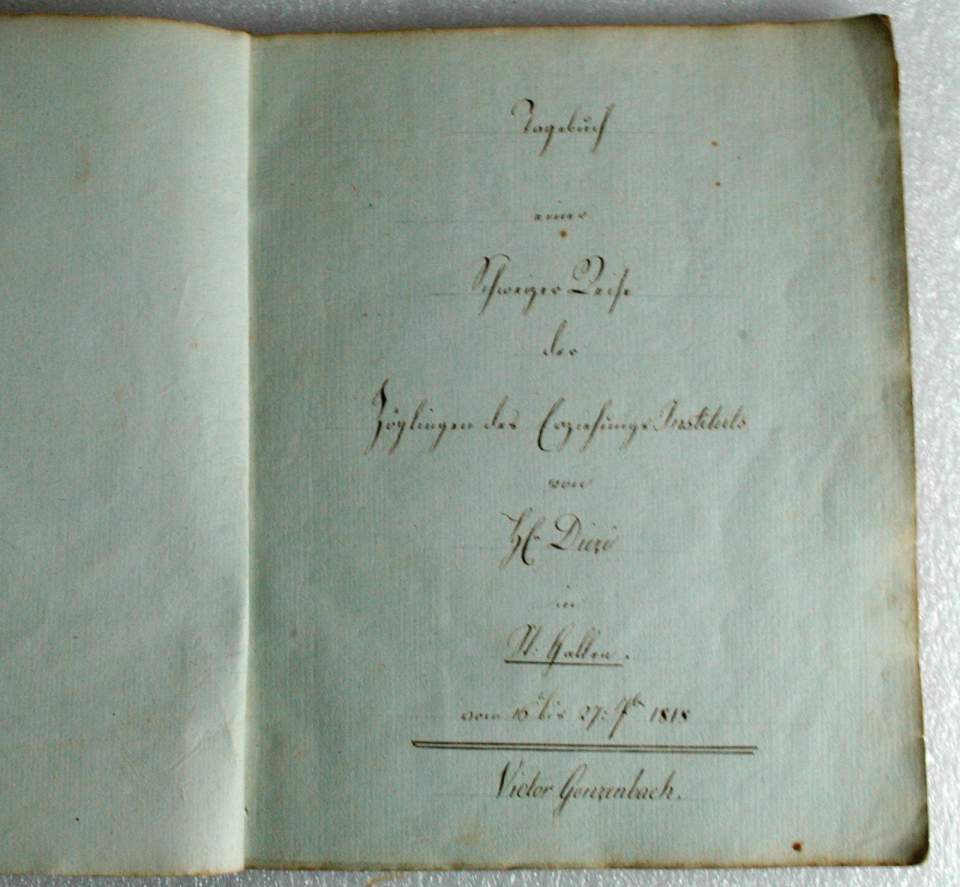 Tagebuch
einer
Schweizer Reise
der
Zöglingen des Erziehungs Instituts
von
H. Diezi
in
St: Gallen.
vom 16 bis 27: 7br 1818
Victor Gonzenbach.